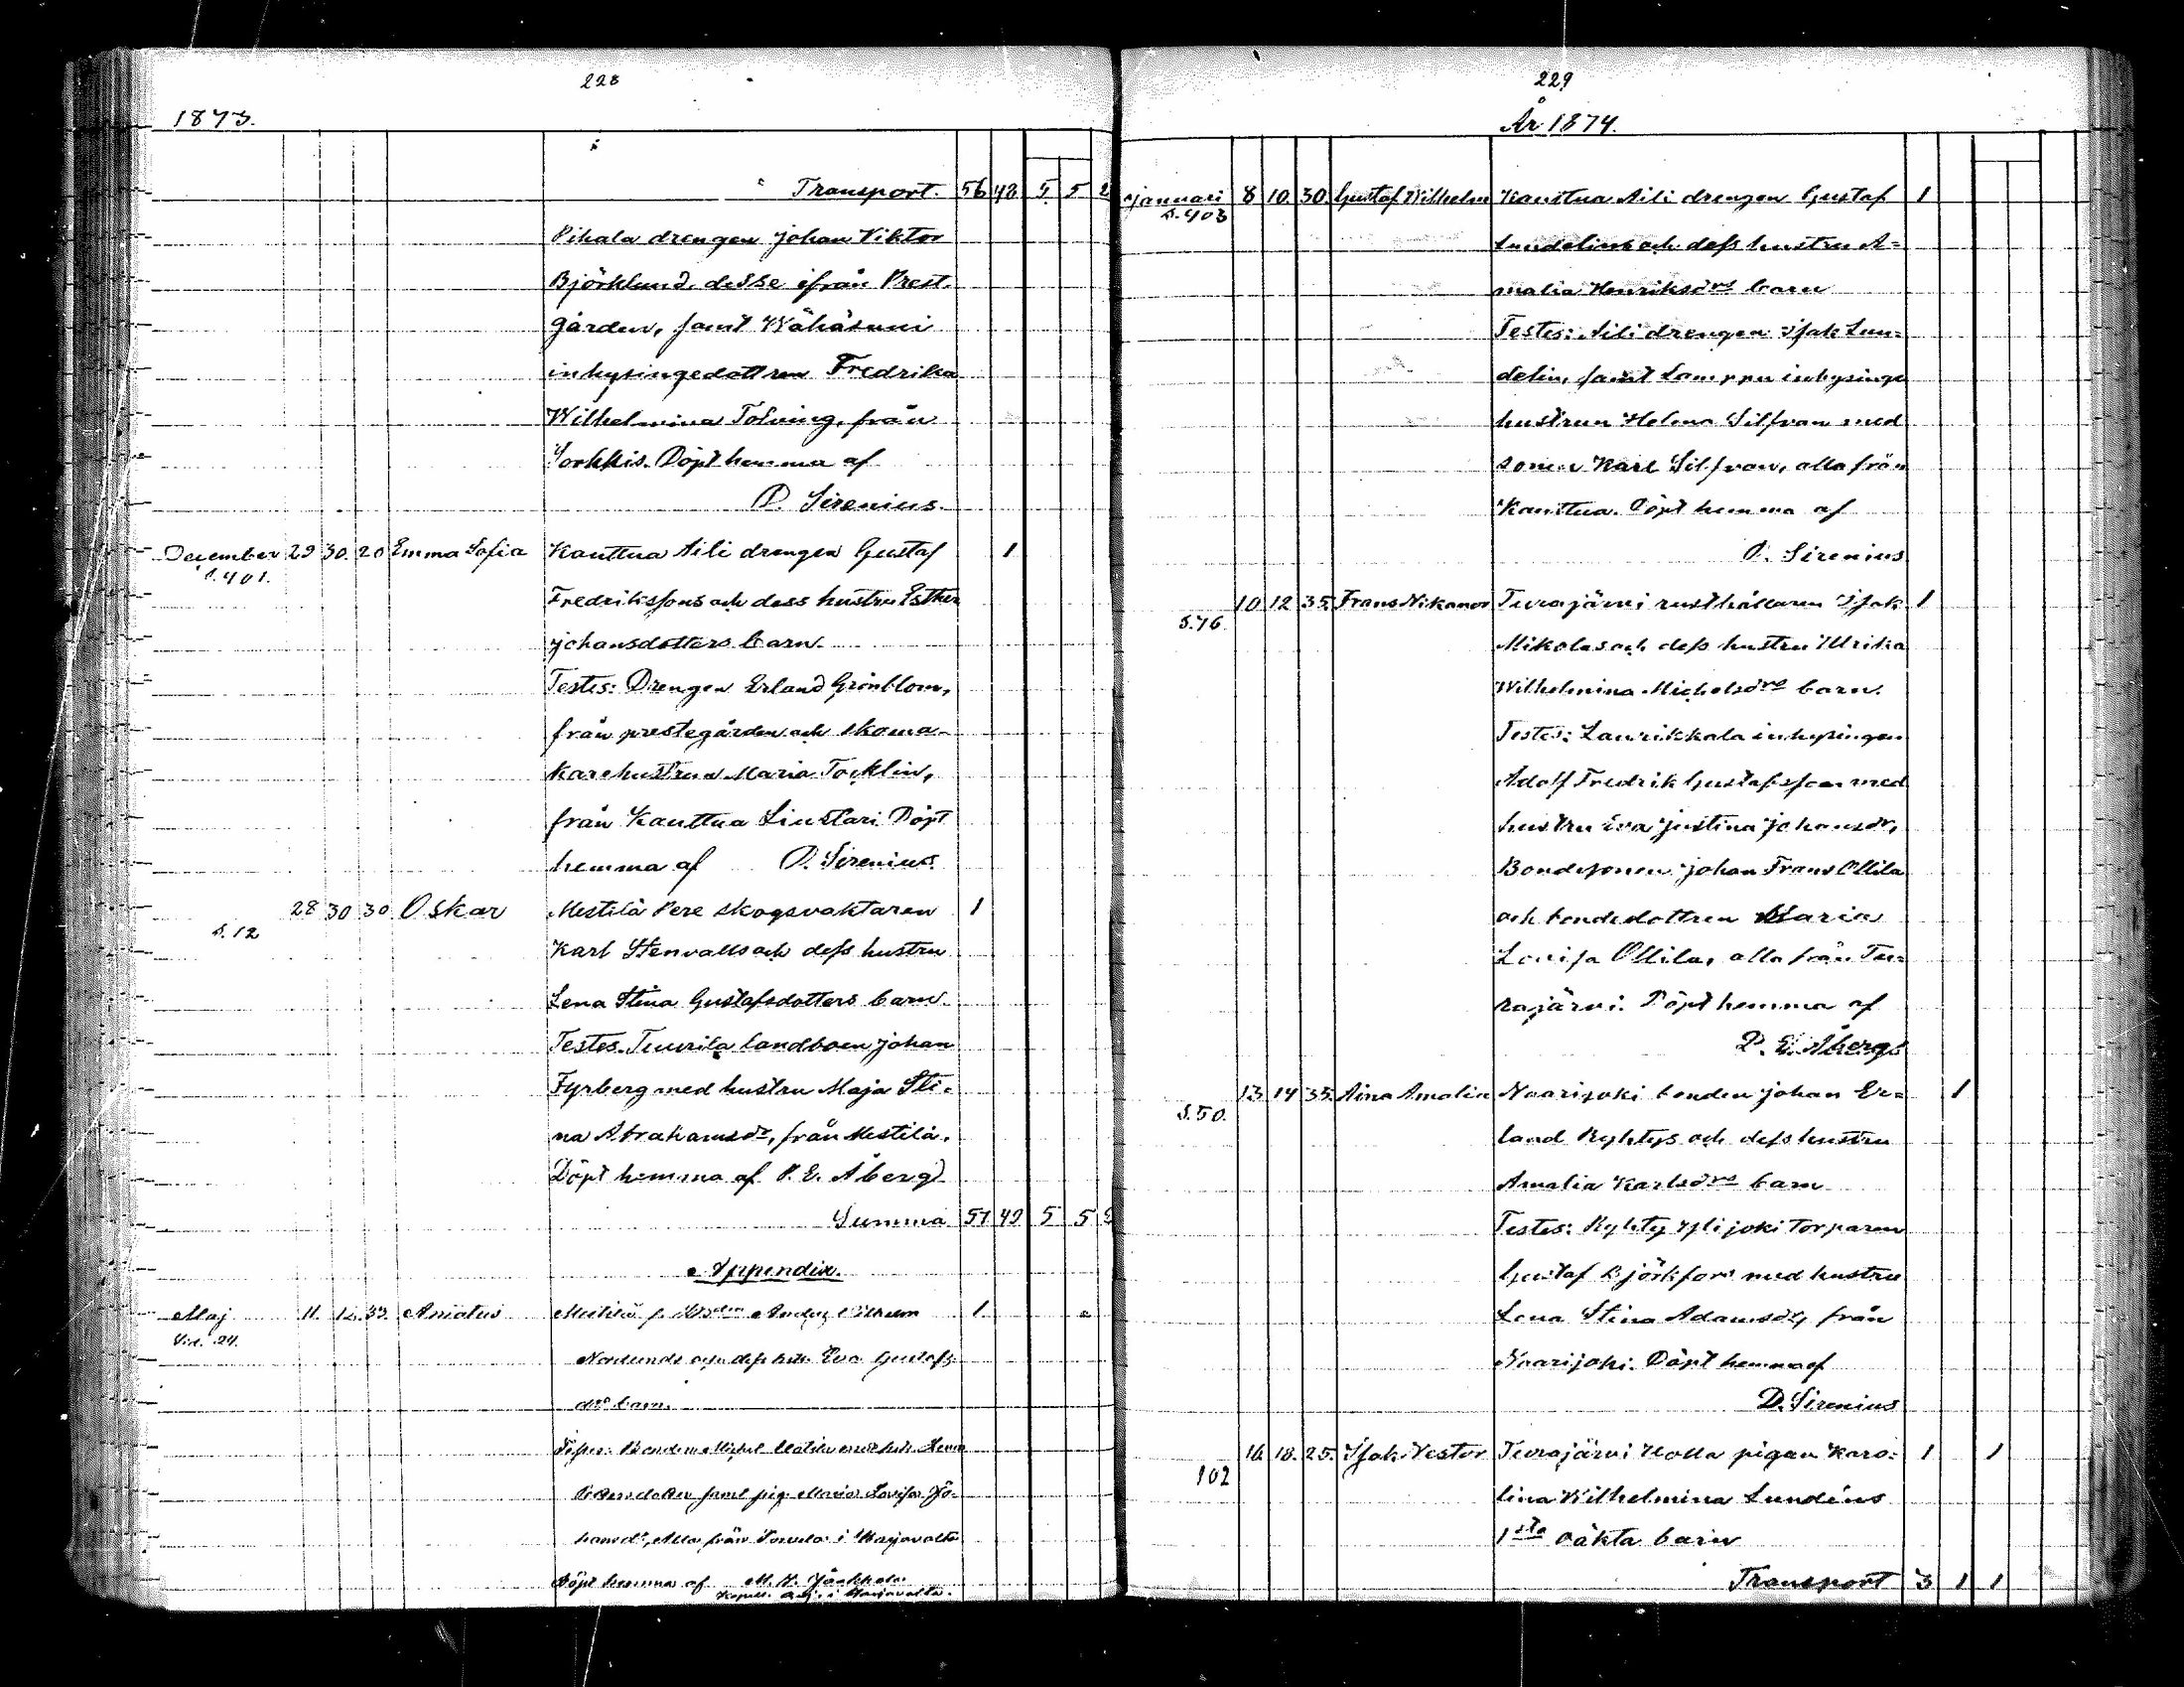 228
1873.
Transport. 56 48 5 5 2
Pihala drengen Johan Viktor
Björklund, desse ifrån Prest-
gården, samt Wähäsuni
inhysingedottren Fredrika
Wilhelmina Tolving, från
Sorkkis. Döpt hemma af
D. Sirenius.
December 29 30. 20 Emma Sofia Kauttua Aili drengen Gustaf 1
S. 401.
Fredrikssons och dess hustru Esther
Johansdotters barn.
Testes: Drengen Erland Grönblom,
från prestegården och skoma-
karehustrun Maria Tocklin,
från Kauttua Liustari. Döpt
hemma af D. Sirenius.
28 30 30 Oskar Mestilä Pere skogsvaktaren 1
S. 12
Karl Stenvalls och dess hustru
Lena Stina Gustafsdotters barn.
Testes. Tuurila landboen Johan
Fyrberg med hustru Maja Sti-
na Abrahamsdr, från Mestilä.
Döpt hemma af P. E. Åberg
Summa 57 49 5 5 2
Appendix.
Maj 11. 12. 33. Amatus Mestilä Anders Wilhelm 1.
Vid. 24.
Nordlunds och dess hu. Eva Gustafs-
drs barn.
Bonden
Pettersdotter samt pig. Maria Lovisa Jo-
hansdr, Alla från i Harjavalta
Döpt hemma af M. H.
Kapell. Adj. i Harjavalta.
229
År 1874.
Januari 8 10. 30. Gustaf Wilhelm Kauttua Aili drengen Gustaf 1
S. 403
Lundelins och dess hustru A-
malia Henriksdrs barn
Testes: Aili drengen Isak Lun-
delin, samt Lamppu inhysinge
hustrun Helena Silfvan med
sonen Karl Silfvan, alla från
Kauttua. Döpt hemma af
D. Sirenius
10 12 35. Frans Nikanor Turajärvi rusthållaren Isak 1
S. 76.
Mikolas och dess hustru Ulrika
Wilhelmina Michelsdrs barn.
Testes: Laurikkala inhysingen
Adolf Fredrik Gustafsson med
hustru Eva Justina Johansdr,
Bondesonen Johan Frans Ollila
och bondedottren Maria
Lovisa Ollila, alla från Tu-
rajärvi. Döpt hemma af
P. E. Åberg
13 14 35. Aina Amalia Naarijoki bonden Johan Er- 1
S. 50.
land Ryhtys och dess hustru
Amalia Karlsdrs barn
Testes: Ryhty Ylijoki torparen
Gustaf Björkfors med hustru
Lena Stina Adamsdr, från
Naarijoki. Döpt hemma af
D. Sirenius
16. 18. 25. Isak Nestor Turajärvi Uolla pigan Karo- 1 1
102
lina Wilhelmina Lundéns
1sta oäkta barn
Transport 3 1 1